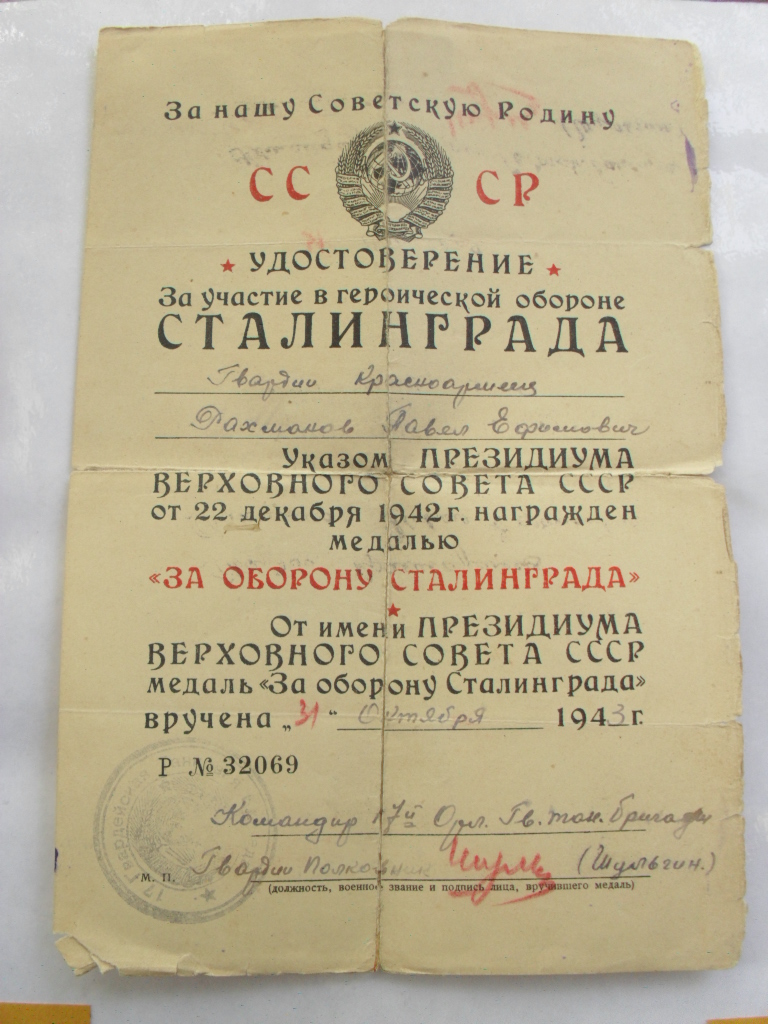 За нашу Советскую Родину
СССР
УДОСТОВЕРЕНИЕ
За участие в героической обороне
СТАЛИНГРАДА
Гвардии Красноармеец
Рахманов Павел Ефимович
Указом ПРЕЗИДИУМА
ВЕРХОВНОГО СОВЕТА СССР
от 22 декабря 1942 г. награжден
медалью
«ЗА ОБОРОНУ СТАЛИНГРАДА»
От имени ПРЕЗИДИУМА
ВЕРХОВНОГО СОВЕТА СССР
медаль «За оборону Сталинграда»
вручена „31“ Октября 1943 г.
Р № 32069
Командир 17й Орл. Гв. тан. бригады
Гвардии Полковник (Шульгин.)
М. П.
(должность, военное звание и подпись лица, вручившего медаль)
17 Гвардейская